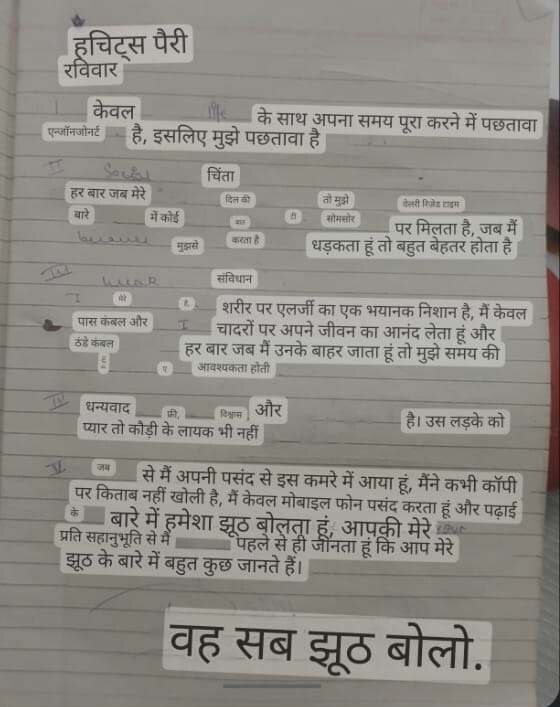 हचिट्स पैरी
रविवार
केवल के साथ अपना समय पूरा करने में पछतावा
एन्जॉनजोनर्ट है, इसलिए मुझे पछतावा है
II Social चिंता
हर बार जब मेरे दिल की तो मुझे वेलरी रिज़ेड टाइम
बारे में कोई बात टी सोमसोर पर मिलता है, जब मैं
because मुझसे करता है धड़कता हूं तो बहुत बेहतर होता है
III संविधान
I मेरे है, शरीर पर एलर्जी का एक भयानक निशान है, मैं केवल
पास कंबल और I चादरों पर अपने जीवन का आनंद लेता हूं और
ठंडे कंबल हर बार जब मैं उनके बाहर जाता हूं तो मुझे समय की
ए आवश्यकता होती
IV धन्यवाद फ्री, विश्वास और है। उस लड़के को
प्यार तो कौड़ी के लायक भी नहीं
V जब से मैं अपनी पसंद से इस कमरे में आया हूं, मैंने कभी कॉपी
पर किताब नहीं खोली है, मैं केवल मोबाइल फोन पसंद करता हूं और पढ़ाई
के बारे में हमेशा झूठ बोलता हूं, आपकी मेरे
प्रति सहानुभूति से मैं पहले से ही जानता हूं कि आप मेरे
झूठ के बारे में बहुत कुछ जानते हैं।
वह सब झूठ बोलो.